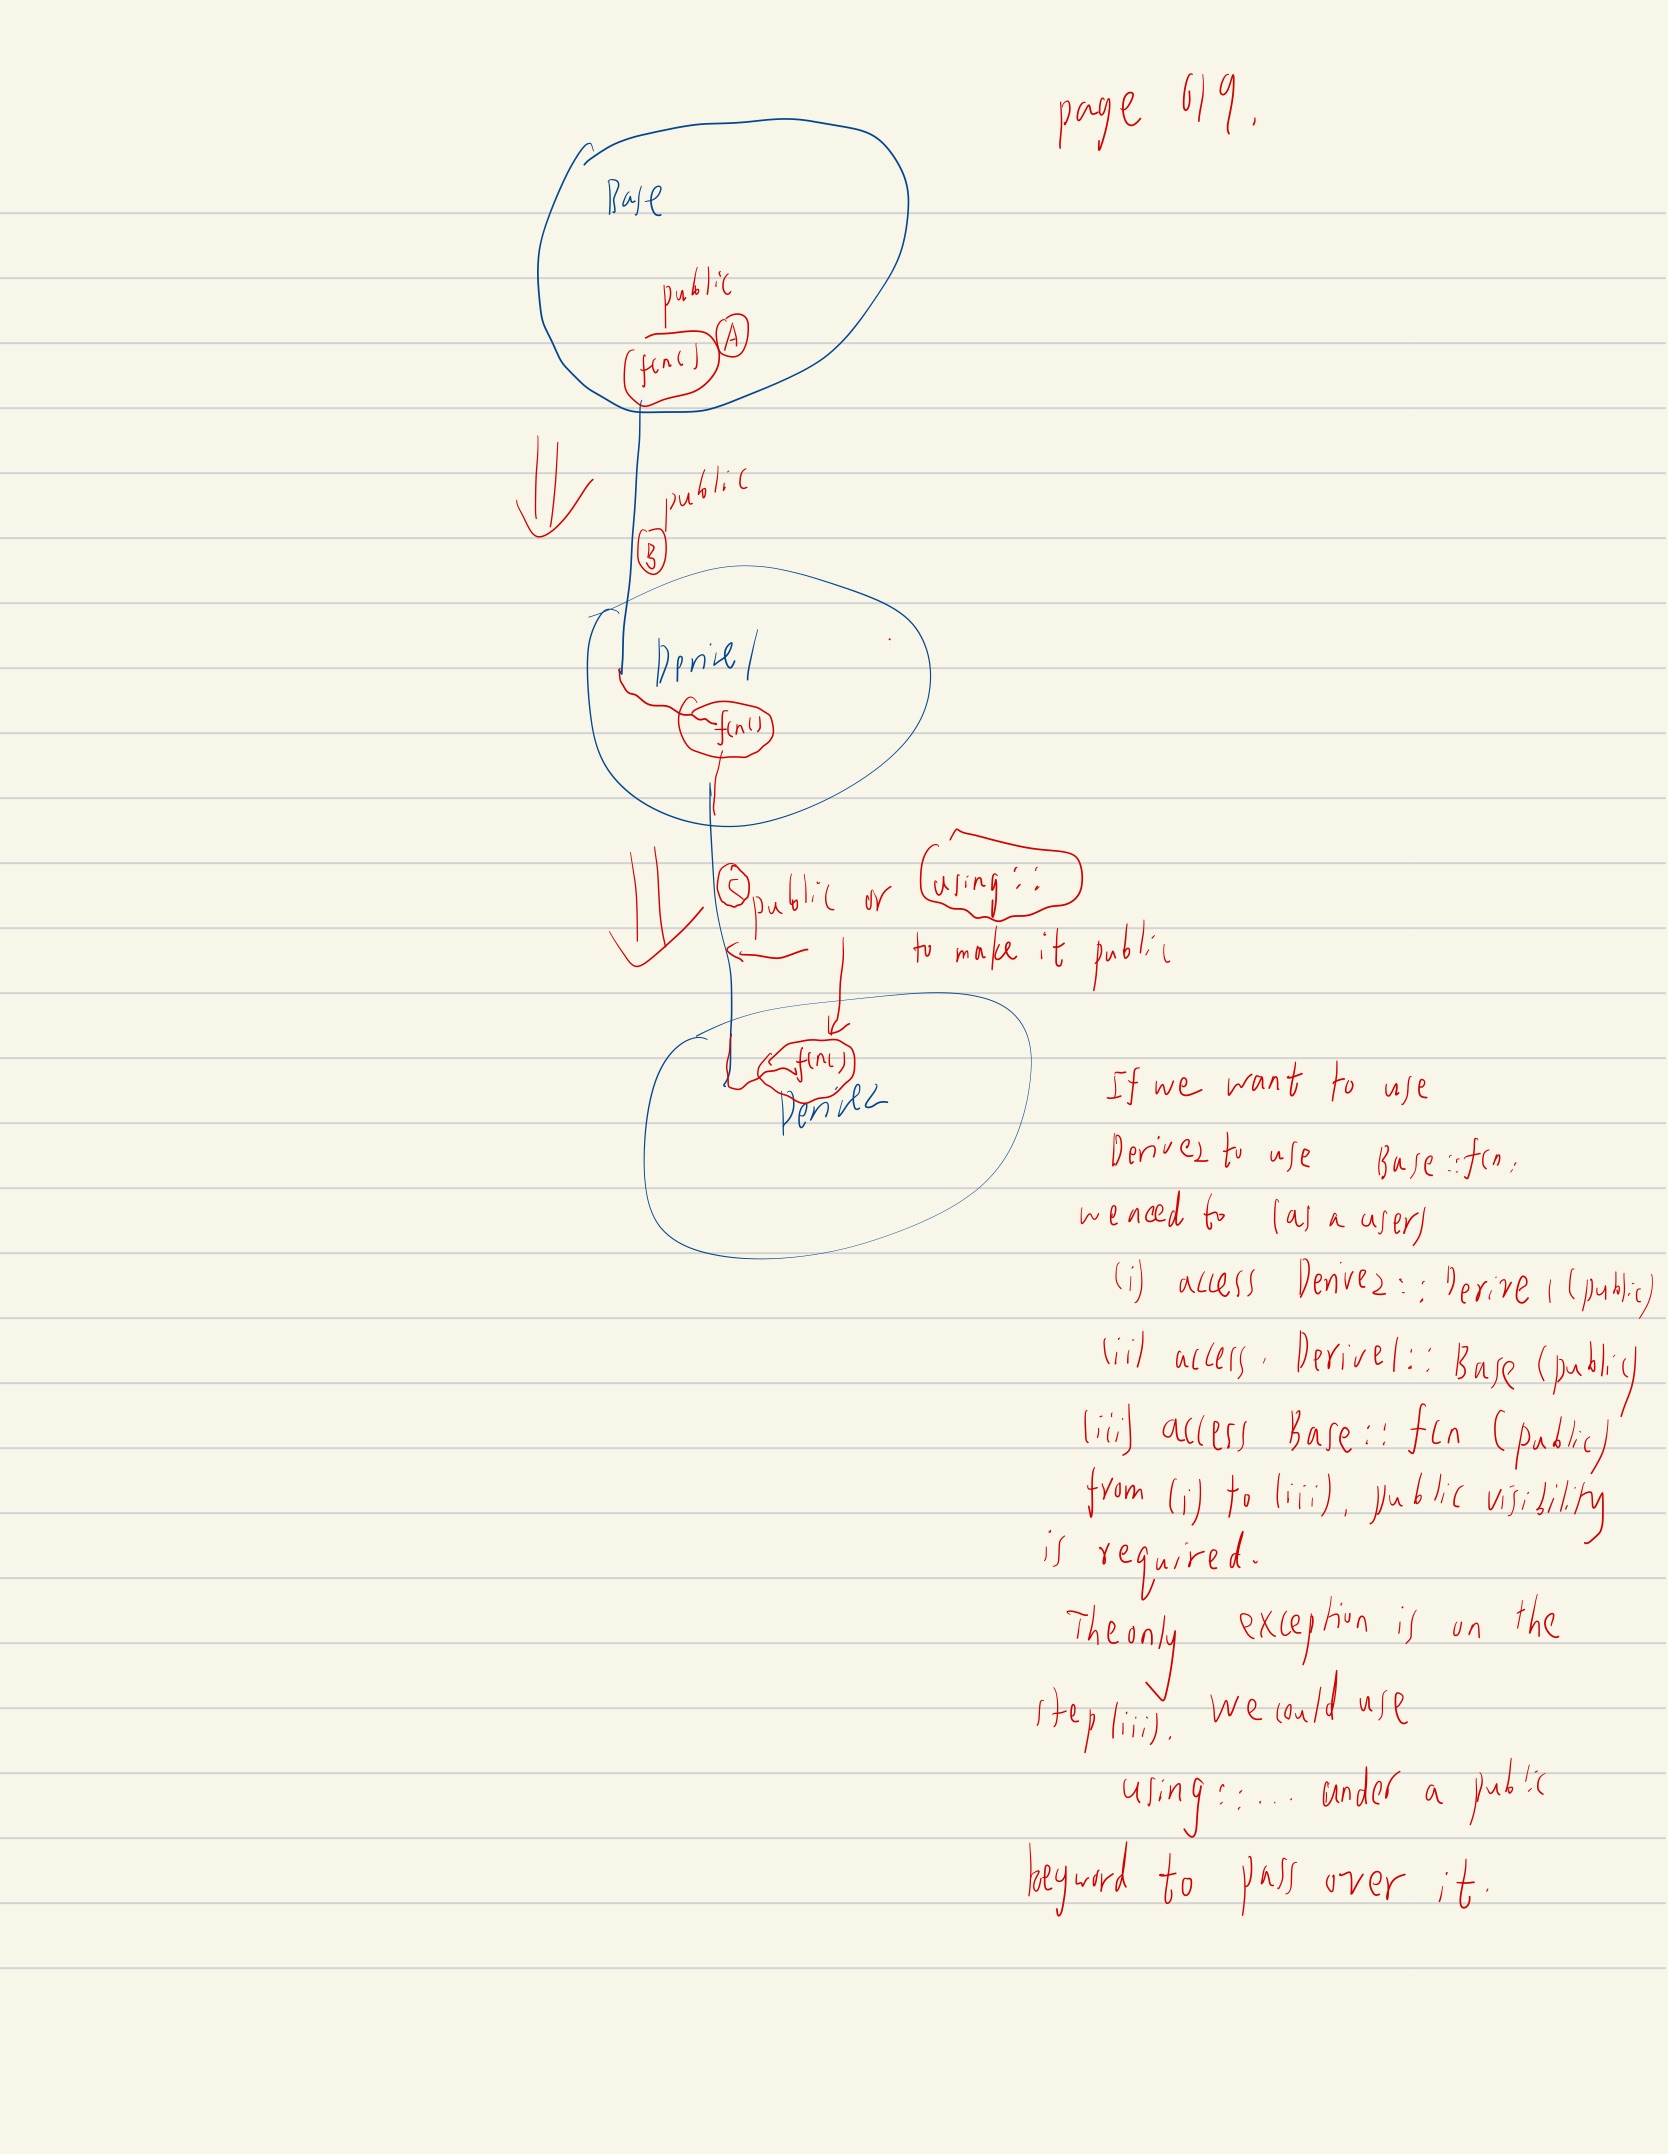 page 619.
Base
public
fcn()
A
public
B
Derive1
fcn()
C public or using::
to make it public
fcn()
Derive2
If we want to use
Derive2 to use Base::fcn.
we need to (as a user)
(i) access Derive2::Derive1 (public)
(ii) access. Derive1::Base (public)
(iii) access Base::fcn (public)
from (i) to (iii), public visibility
is required.
The only exception is on the
step (iii). We could use
using::... under a public
keyword to pass over it.